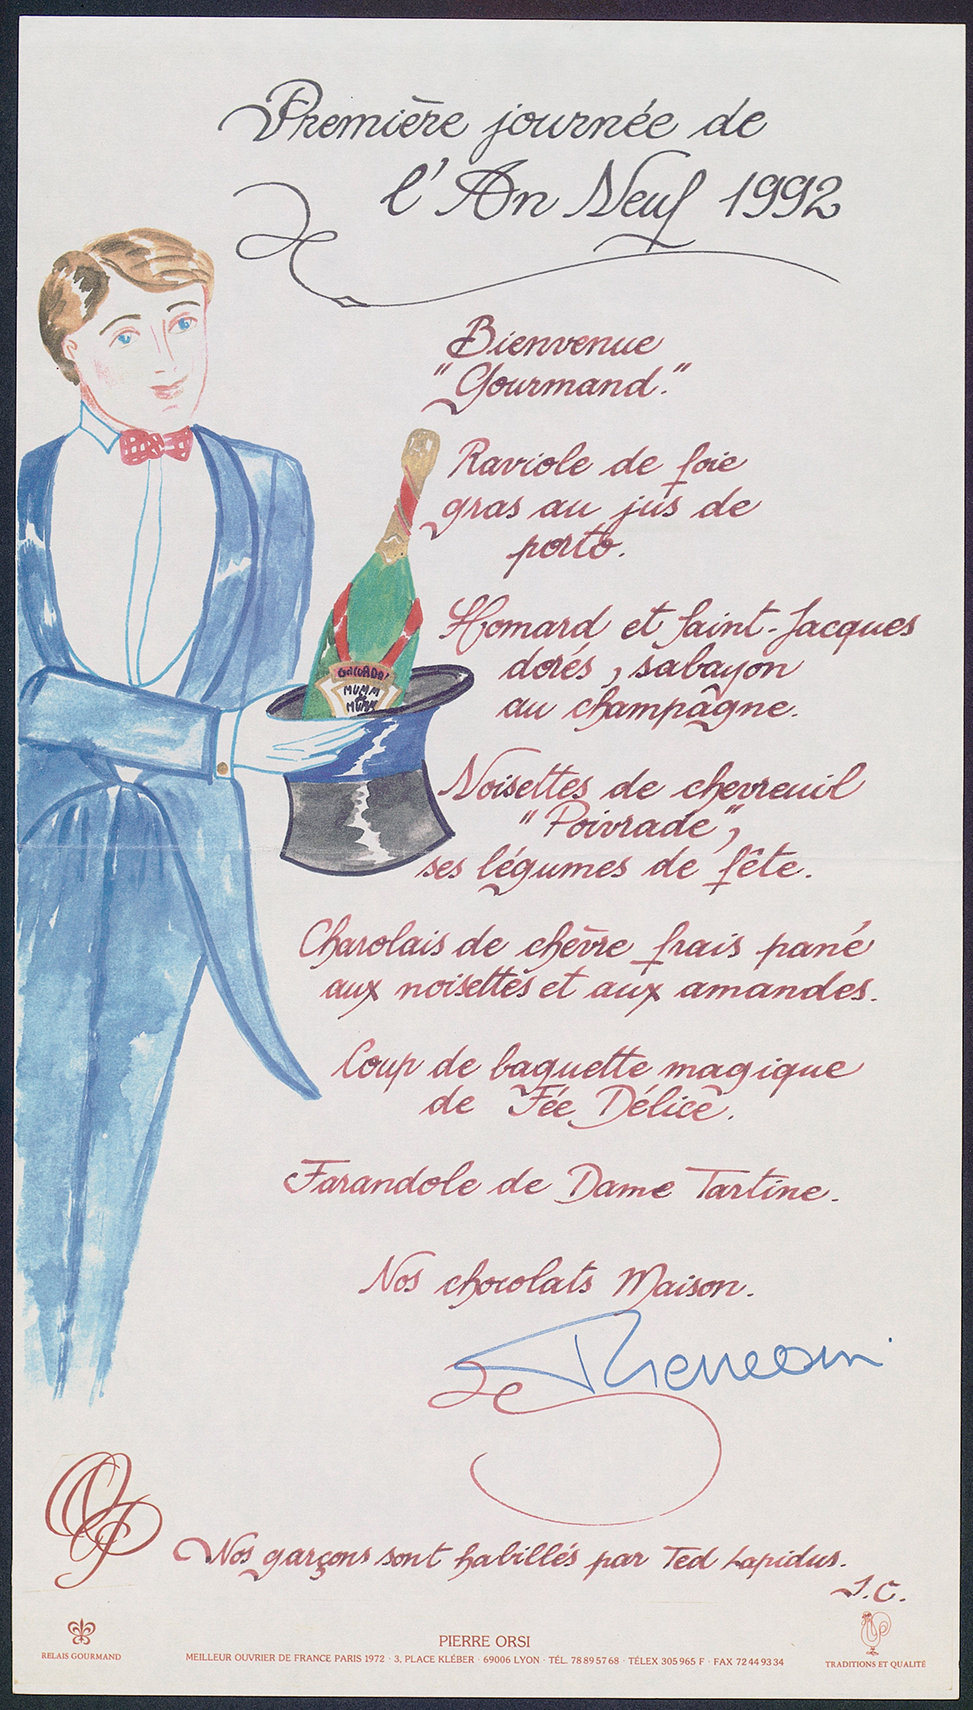 Première journée de
l'An Neuf 1992
Bienvenue
"Gourmand."
Raviole de foie
gras au jus de
porto.
Homard et Saint-Jacques
dorés, sabayon
au champâgne.
Noisettes de chevreuil
"Poivrade",
ses légumes de fête.
Charolais de chèvre frais pané
aux noisettes et aux amandes.
Coup de baguette magique
de Fée Délice.
Farandole de Dame Tartine.
Nos chocolats Maison.
Nos garçons sont habillés par Ted Lapidus.
J.C.
MUMM
MUMM
RELAIS GOURMAND
PIERRE ORSI
MEILLEUR OUVRIER DE FRANCE PARIS 1972 · 3, PLACE KLÉBER · 69006 LYON · TÉL. 78 89 57 68 · TÉLEX 305 965 F · FAX 72 44 93 34
TRADITIONS ET QUALITÉ